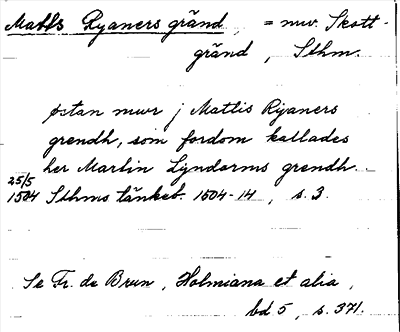 Matts Ryaners gränd, = nuv. Skott-
gränd, Sthm.
østan mwr j Mattis Ryaners
grendh, som fordom kallades
her Martin Lyndorms grendh.
25/5
1504 Sthms tänkeb. 1504-14, s. 3.
Se Fr. de Brun, Holmiana et alia,
bd 5, s. 371.